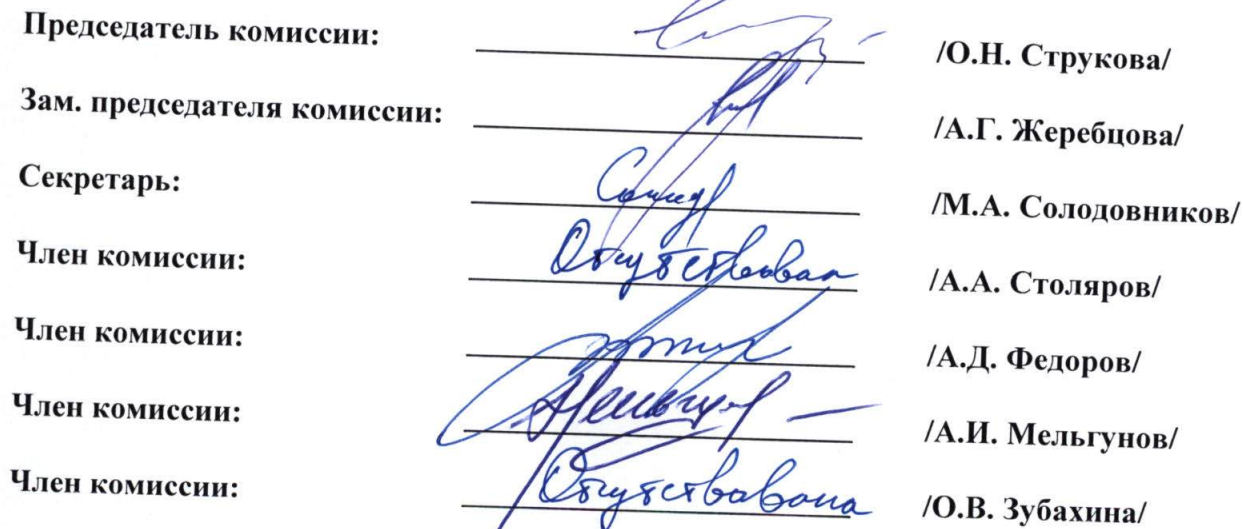 Председатель комиссии: /О.Н. Струкова/
Зам. председателя комиссии: /А.Г. Жеребцова/
Секретарь: /М.А. Солодовников/
Член комиссии: Отсутствовал /А.А. Столяров/
Член комиссии: /А.Д. Федоров/
Член комиссии: /А.И. Мельгунов/
Член комиссии: Отсутствовала /О.В. Зубахина/